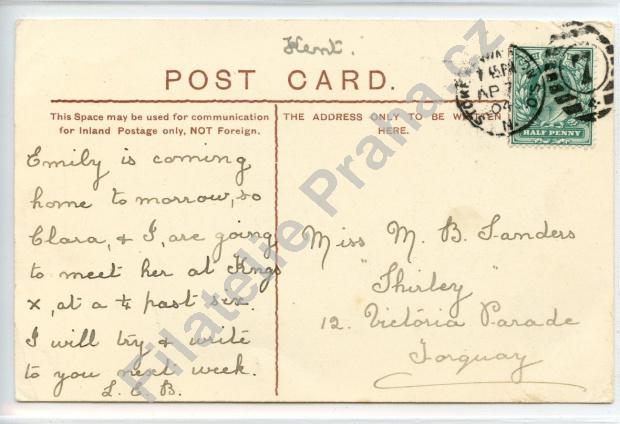 Kent.
POST CARD.
This Space may be used for communication
for Inland Postage only, NOT Foreign.
THE ADDRESS ONLY TO BE WRITTEN
HERE.
Emily is coming
home to morrow, so
Clara, & I, are going
to meet her at Kngs
x, at a ¼ past six.
I will try & write
to you next week.
L. E. B.
Miss M. B. Sanders
"Shirley"
12. Victoria Parade
Torquay
AP 7
04
N
HALF PENNY
Filatelie Praha.cz